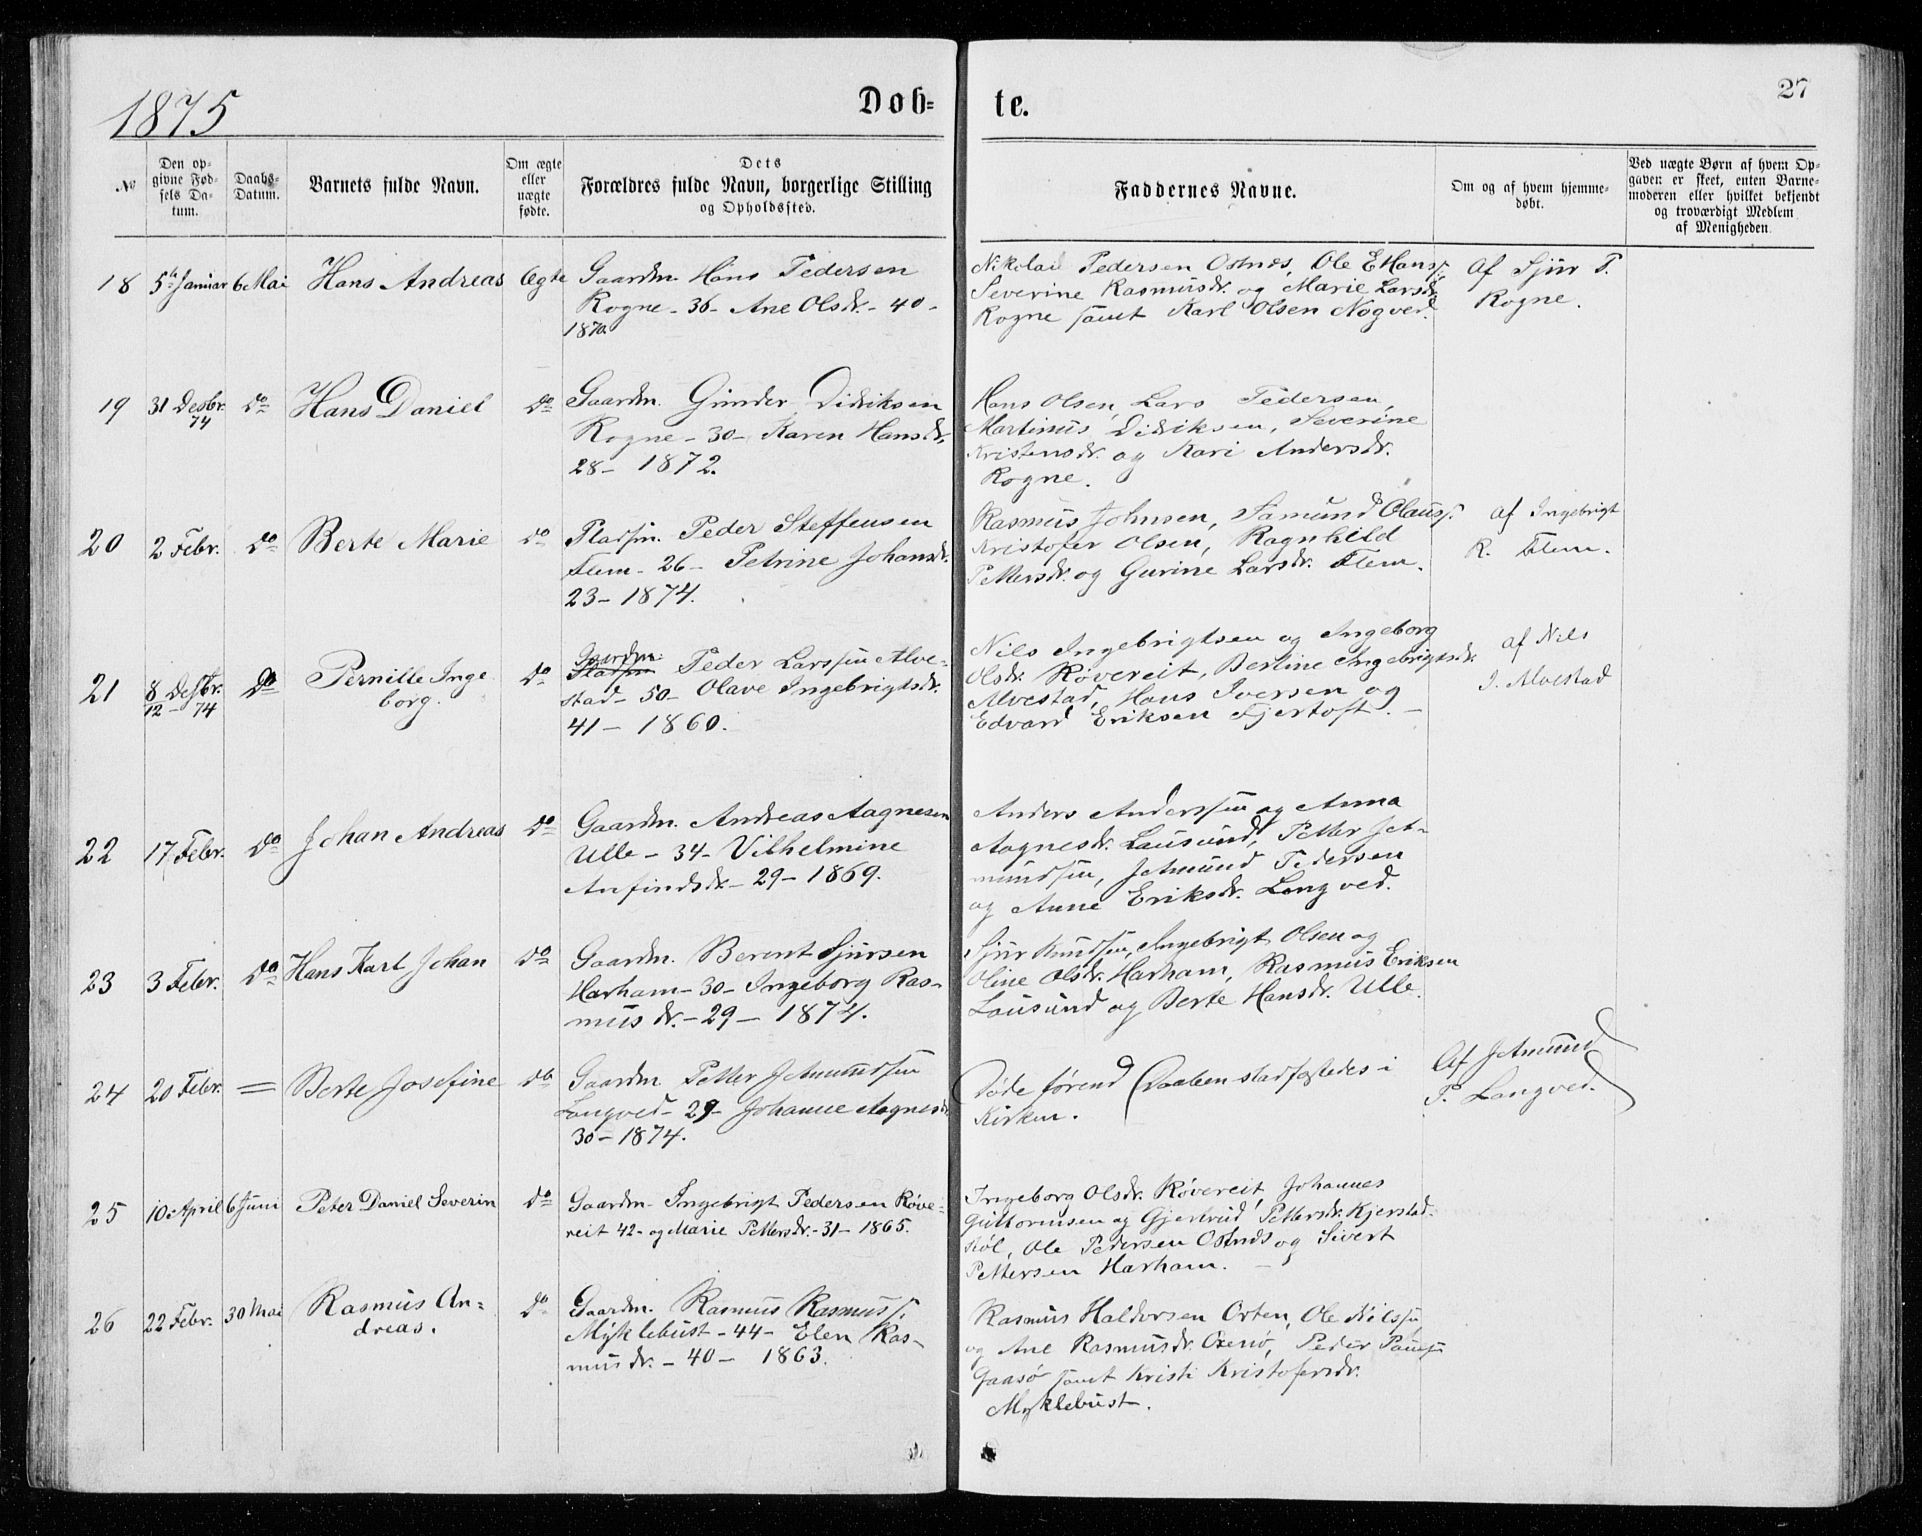 1875
Døb=
te.
27
No
Den op-
givne Fød-
sels Da-
tum.
Daabs-
Datum.
Barnets fulde Navn.
Om ægte
eller
uægte
fødte.
Dets
Forældres fulde Navn, borgerlige Stilling
og Opholdssted.
Faddernes Navne.
Om og af hvem hjemme-
døbt.
Ved uægte Børn af hvem Op-
gaven er skeet, enten Barne-
moderen eller hvilket bekjendt
og troværdigt Medlem
af Menigheden.
18 5te Januar 6 Mai Hans Andreas Ægte
Gaardm. Hans Pedersen
Rogne - 36 - Ane Olsdr. - 40 -
1870.
Nikolai Pedersen Ostnes, Ole E Hans.
Severine Rasmusdr. og Marie Larsdr.
Rogne samt Karl Olsen Nogved.
Af Sjur P.
Rogne.
19 31 Desbr. 74 do Hans Daniel do
Gaardm. Gunder Didriksen
Rogne - 30 - Karen Hansdr.
28 - 1872.
Hans Olsen, Lars Pedersen,
Martinus Didriksen, Severine
Kristensdr. og Kari Andersdr.
Rogne.
20 2 Febr. do Berte Marie do
Pladsm. Peder Steffensen
Flem - 26 - Petrine Johansdr.
23 - 1874.
Rasmus Johnsen, Samund Olauss.
Kristofer Olsen, Ragnhild
Pettersdr. og Gurine Larsdr. Flem.
af Ingebrigt
R. Flem.
21 8 Desbr. 12 - 74 do Pernille Inge
borg. do
Gaardm.
Pladsm. Peder Larssen Alve-
stad - 50 - Olave Ingebrigtsdr.
41 - 1860.
Nils Ingebrigtsen og Ingeborg
Olsdr. Røvereit, Berline Ingebrigtsdr.
Alvestad, Hans Iversen og
Edvard Eriksen Fjertoft. -
af Nils
I. Alvestad
22 17 Febr. do Johan Andreas do
Gaardm. Andreas Aagnesen
Ulle - 34 - Vilhelmine
Anfindsdr. - 29 - 1869.
Anders Anderssen og Anna
Aagnesdr. Lausund, Petter Jet-
mundsen, Jetmund Pedersen
og Anne Eriksdr. Longved.
23 3 Febr. do Hans Karl Johan do
Gaardm. Berent Sjursen
Harham - 30 - Ingeborg Ras-
musdr. - 29 - 1874.
Sjur Knudsen, Ingebrigt Olsen og
Oline Olsdr. Harham, Rasmus Eriksen
Lausund og Berte Hansdr. Ulle.
24 20 Febr. = Berte Josefine do
Gaardm. Petter Jetmundsen
Longved - 29 - Johanne Aagnesdr.
30 - 1874.
Døde førend Daaben stadfæstedes i
Kirken.
Af Jetmund
P. Longved.
25 10 April 6 Juni Peter Daniel Severin do
Gaardm. Ingebrigt Pedersen Røve-
reit 42 - og Marie Pettersdr. - 31 - 1865.
Ingeborg Olsdr. Røvereit, Johannes
Guttormsen og Gjertrud Pettersdr. Kjerstad-
Støl, Ole Pedersen Ostnes og Sivert
Pettersen Harham. -
26 22 Febr. 30 Mai Rasmus An-
dreas. do
Gaardm. Rasmus Rasmuss.
Myklebust - 44 - Elen Ras-
musdr. - 40 - 1863.
Rasmus Haldorsen Orten, Ole Nilssen
og Ane Rasmusdr. Oxenø, Peder
Gaasø samt Kristi Kristofersdr.
Myklebust.